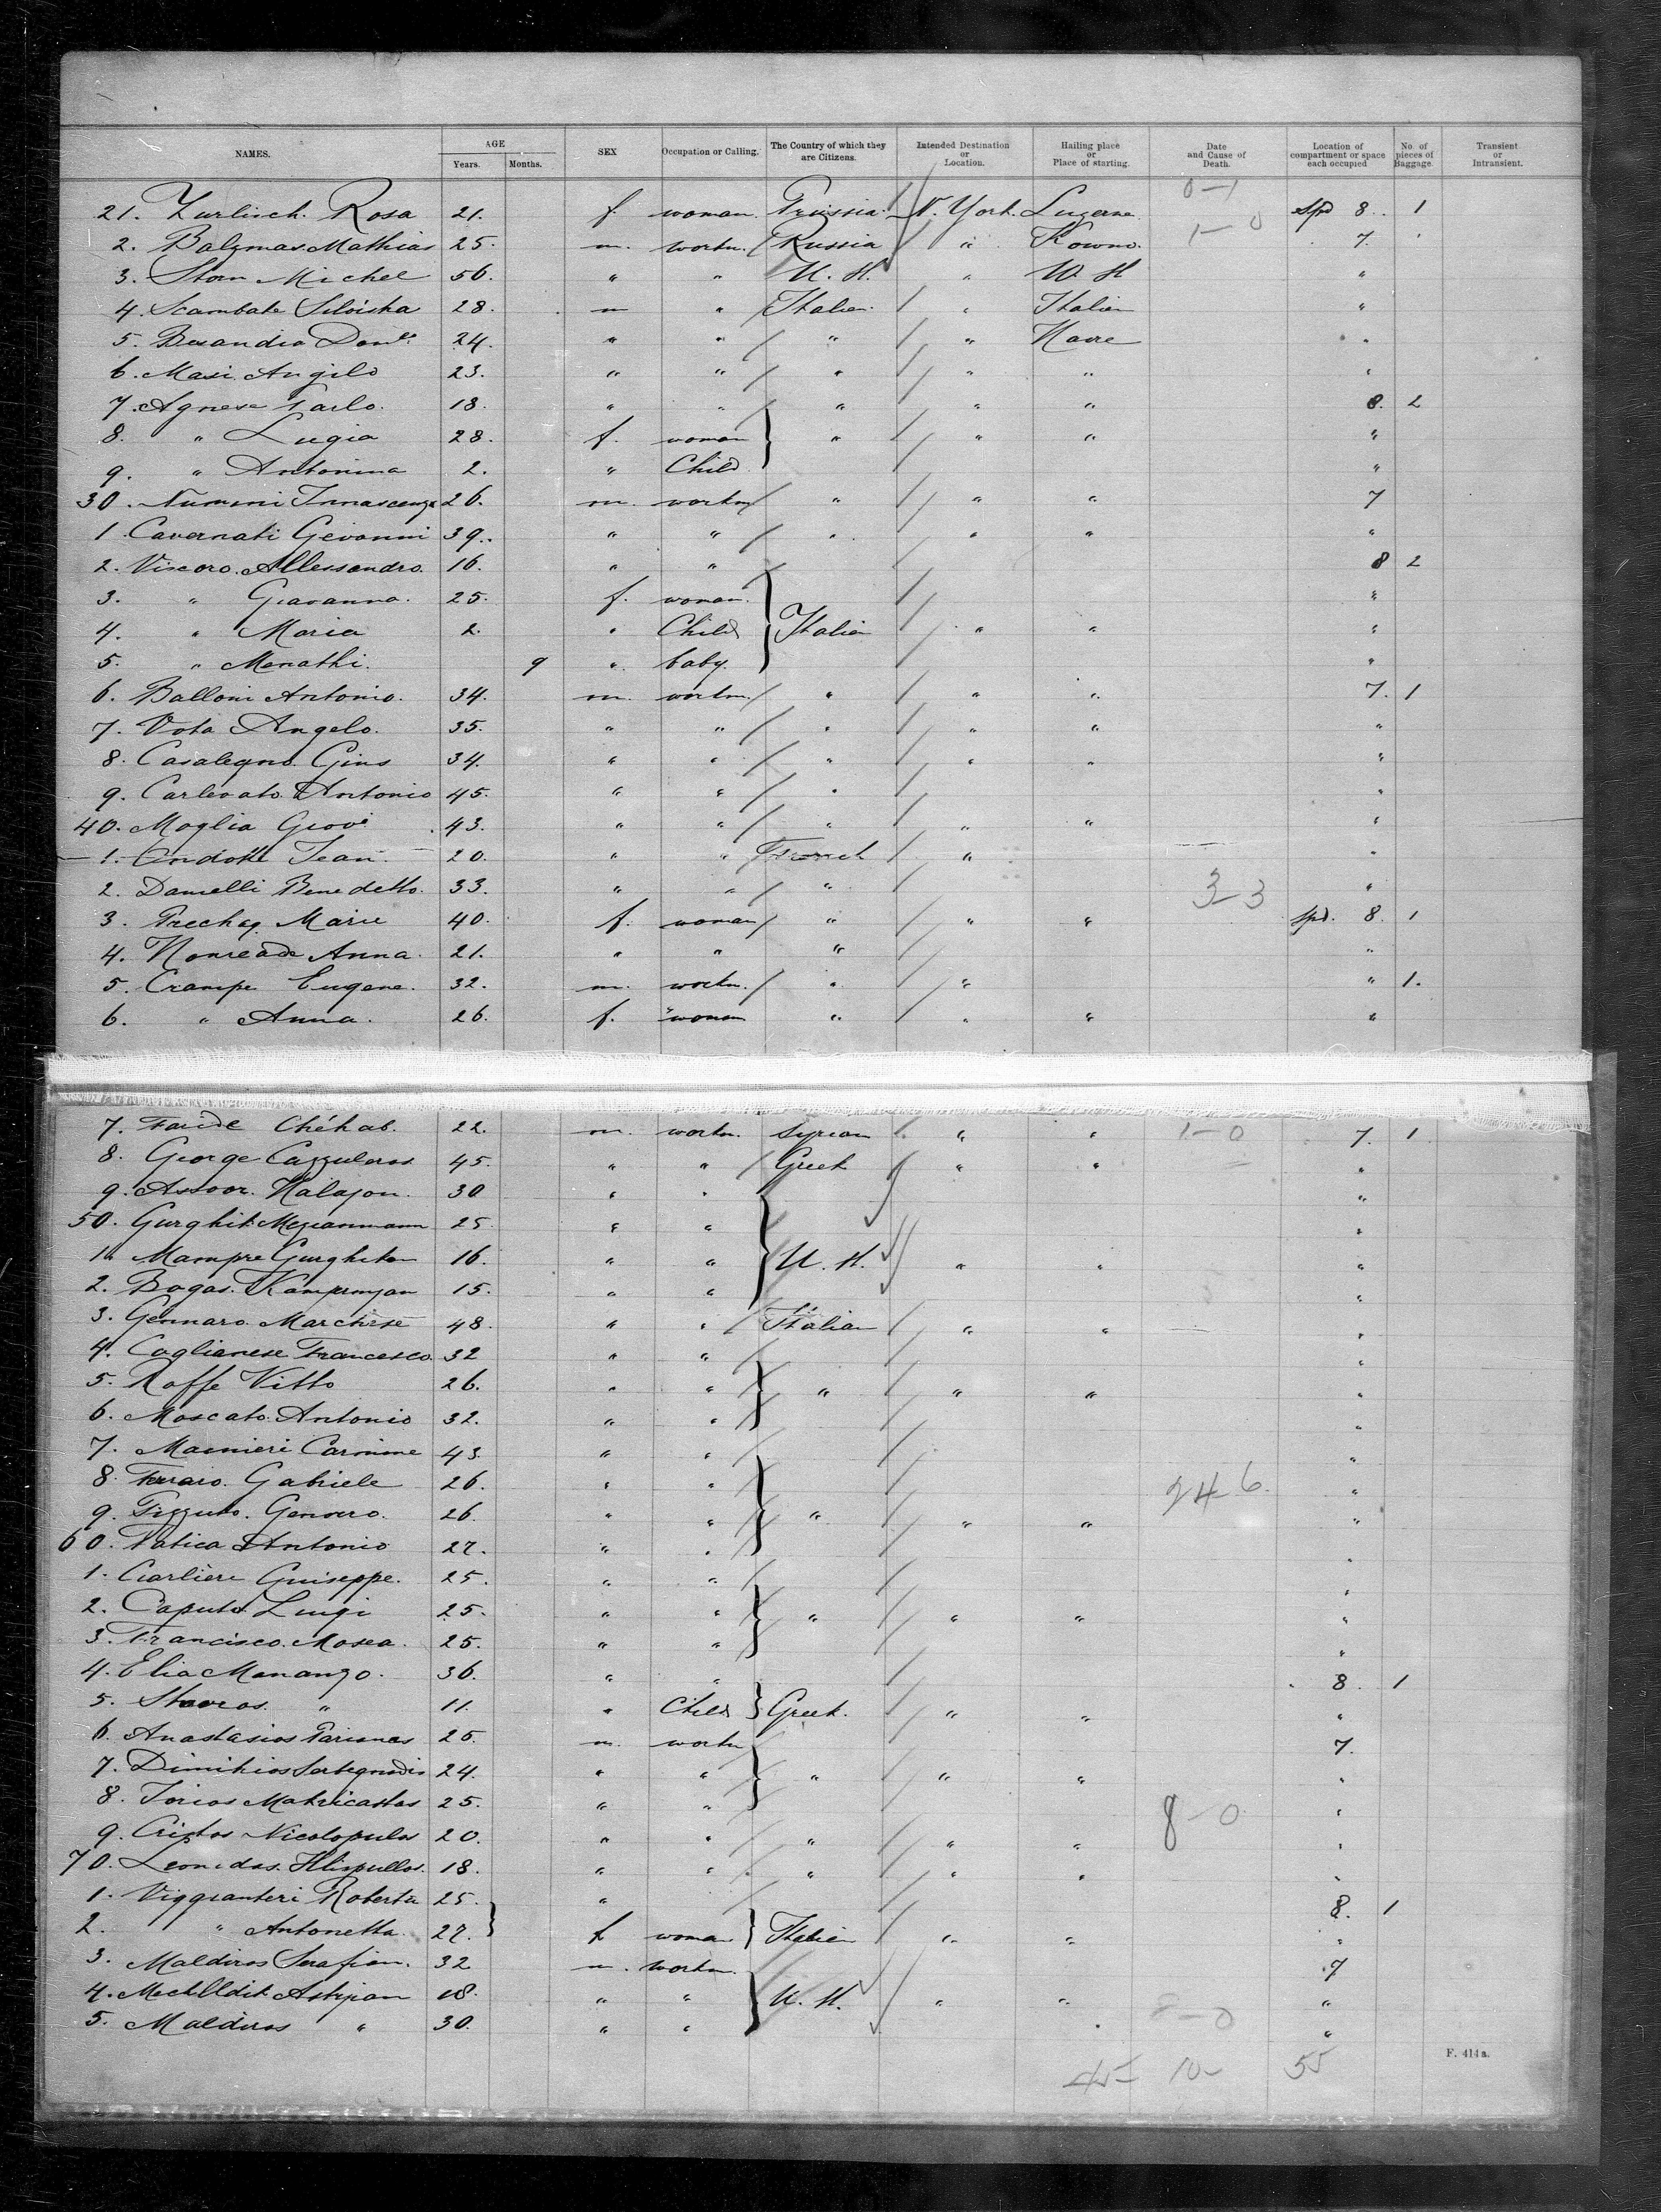 NAMES. AGE Years. Months. SEX Occupation or Calling. The Country of which they are Citizens. Intended Destination or Location. Hailing place or Place of starting. Date and Cause of Death. Location of compartment or space each occupied No. of pieces of Baggage. Transient or Intransient.
0-1
21. Zurlisch. Rosa 21. f. woman. Prussia. N. York. Luzerne Spd 8. 1
2. Balzmas. Mathias 25. m. workm. Russia " Kowno. 1-0 7. '
3. Storn Michel 56. " " U. St. " U. St "
4. Scambate 28. m " Italien " Italien "
5. 24. " " " " Havre "
6. Masi Angilo 23. " " " " " "
7. Agnese Carlo. 18. " " " " " 8. 2
8. " Lugia 28. f. woman " " " "
9. " Antonina 2. " Child "
30. Nummi 26. m. workm " " " 7
1. Cavernati Giovanni 39. " " " " " "
2. Viscoro. Allessandro. 16. " " 8 2
3. " Giavanna. 25. f. woman. "
4. " Maria 2. " Child Italien " " "
5. " Menathi. 9 " baby. "
6. Balloni Antonio. 34. m. workm. " " " 7. 1
7. Vota Angelo. 35. " " " " " "
8. Casalegno. Gius 34. " " " " " "
9. Carlevato. Antonio 45. " " " "
40. Moglia Giov. 43. " " " " " "
1. Jean. 20. " " French " "
2. Danielli Benedetto. 33. " " " "
3-3
3. Marie 40. f. woman " " " Spd. 8. 1
4. Anna. 21. " " " "
5. Crampe Eugene. 32. m. workm. " " " 1.
6. " Anna. 26. f. woman " " " "
7. Faide Chéhab. 22. m. workm. Syrian " " 1-0 7. 1
8. George Cazzuleros 45. " " Greek " " "
9. Assoor. Halajon. 30 " " "
50. Gurghit. 25. " " "
1. Mampre 16. " " U. St. " " "
2. Bogas. 15. " " "
3. Gennaro. Marchese 48. " " Italian " " "
4. Coglianese Francesco. 32 " " "
5. Roffe Vitto 26. " " " " " "
6. Moscato. Antonio 32. " " "
7. Mainieri Carmine 43. " " "
8. Ferraro. Gabriele 26. " " 24-6. "
9. Pizzuto. Gennero. 26. " " " " " "
60. Fatica Antonio 27. " " "
1. Carliere Guiseppe. 25. " " "
2. Caputo. Luigi 25. " " " " " "
3. Francisco. Mosea. 25. " " "
4. Elia Manango. 36. " " 8. 1
5. Stavros. " 11. " Child Greek. " " "
6. Anastasios 25. m. workm 7.
7. Dimihios 24. " " " " " "
8. Matricastas 25. " " 8-0 "
9. Cristos Nicolopulos 20. " " " " " "
70. Leonidas. 18. " " " " " "
1. Roberta 25. " 8. 1
2. " Antonetta. 27. f. woman Italien " " "
3. Maldiros Serafian. 32 m. workm. 7
4. Astijian 18. " " U. St. " " "
5. Maldiros " 30. " " " "
F. 414a.
45- 10- 55